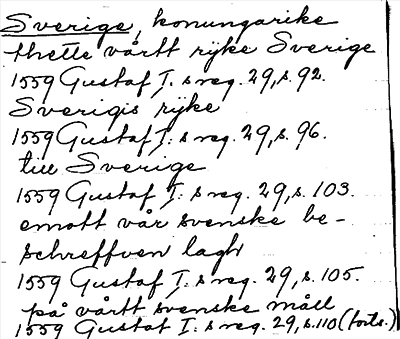 Sverige, konungarike
thette vårtt rijke Sverige
1559 Gustaf I:s reg. 29, s. 92.
Sverigis rijke
1559 Gustaf I:s reg. 29, s. 96.
till Sverige
1559 Gustaf I:s reg. 29, s. 103.
emott vår svenske be-
schreffven lagh
1559 Gustaf I:s reg. 29, s. 105.
på vårtt svenske måll
1559 Gustaf I:s reg. 29, s. 110 (forts.)